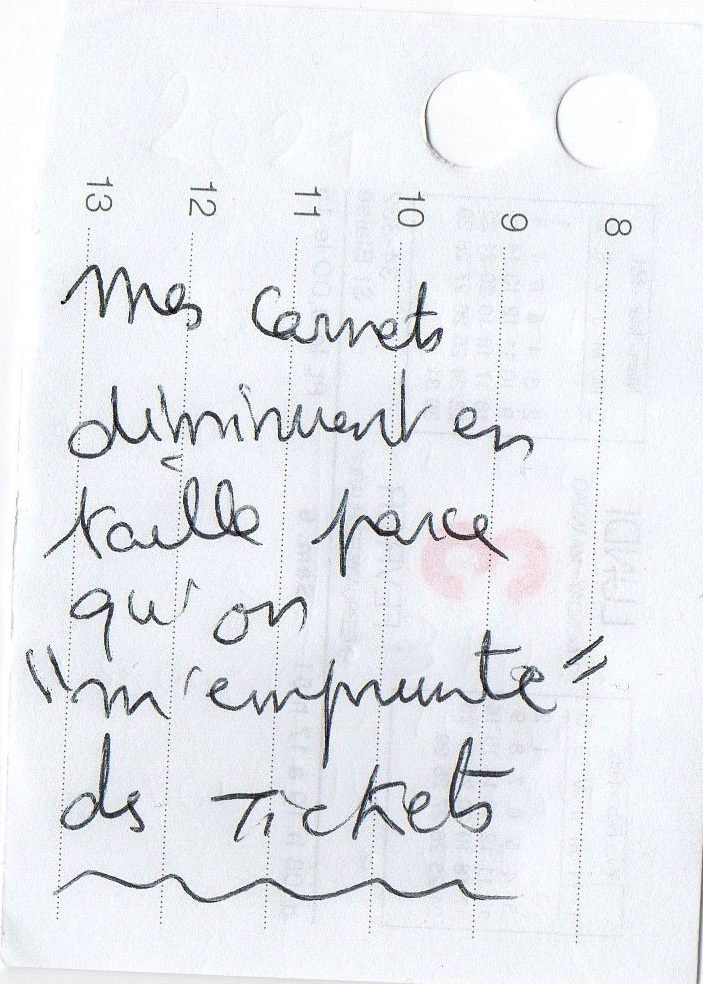 13
12
11
10
9
8
Mes carnets
diminuent en
taille parce
qu'on
"m'emprunte"
des Tickets